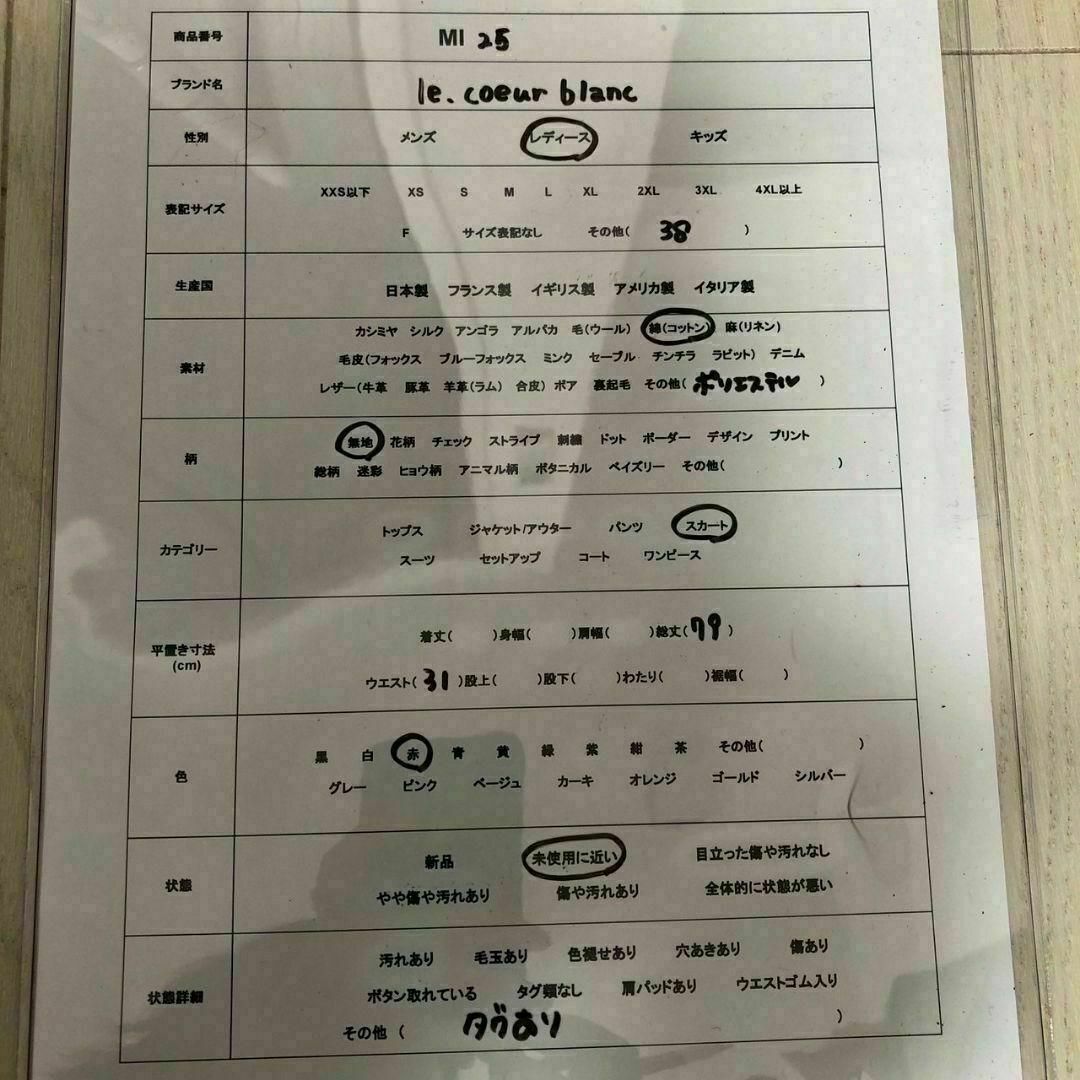 商品番号 MI 25
ブランド名 le. coeur blanc
性別 メンズ レディース キッズ
表記サイズ XXS以下 XS S M L XL 2XL 3XL 4XL以上
F サイズ表記なし その他( 38 )
生産国 日本製 フランス製 イギリス製 アメリカ製 イタリア製
素材 カシミヤ シルク アンゴラ アルパカ 毛(ウール) 綿(コットン) 麻(リネン)
毛皮(フォックス ブルーフォックス ミンク セーブル チンチラ ラビット) デニム
レザー(牛革 豚革 羊革(ラム) 合皮) ボア 裏起毛 その他( ポリエステル )
柄 無地 花柄 チェック ストライプ 刺繍 ドット ボーダー デザイン プリント
総柄 迷彩 ヒョウ柄 アニマル柄 ボタニカル ペイズリー その他( )
カテゴリー トップス ジャケット/アウター パンツ スカート
スーツ セットアップ コート ワンピース
平置き寸法 (cm) 着丈( )身幅( )肩幅( )総丈( 79 )
ウエスト( 31 )股上( )股下( )わたり( )裾幅( )
色 黒 白 赤 青 黄 緑 紫 紺 茶 その他( )
グレー ピンク ベージュ カーキ オレンジ ゴールド シルバー
状態 新品 未使用に近い 目立った傷や汚れなし
やや傷や汚れあり 傷や汚れあり 全体的に状態が悪い
状態詳細 汚れあり 毛玉あり 色褪せあり 穴あきあり 傷あり
ボタン取れている タグ類なし 肩パッドあり ウエストゴム入り
その他 ( タグあり )